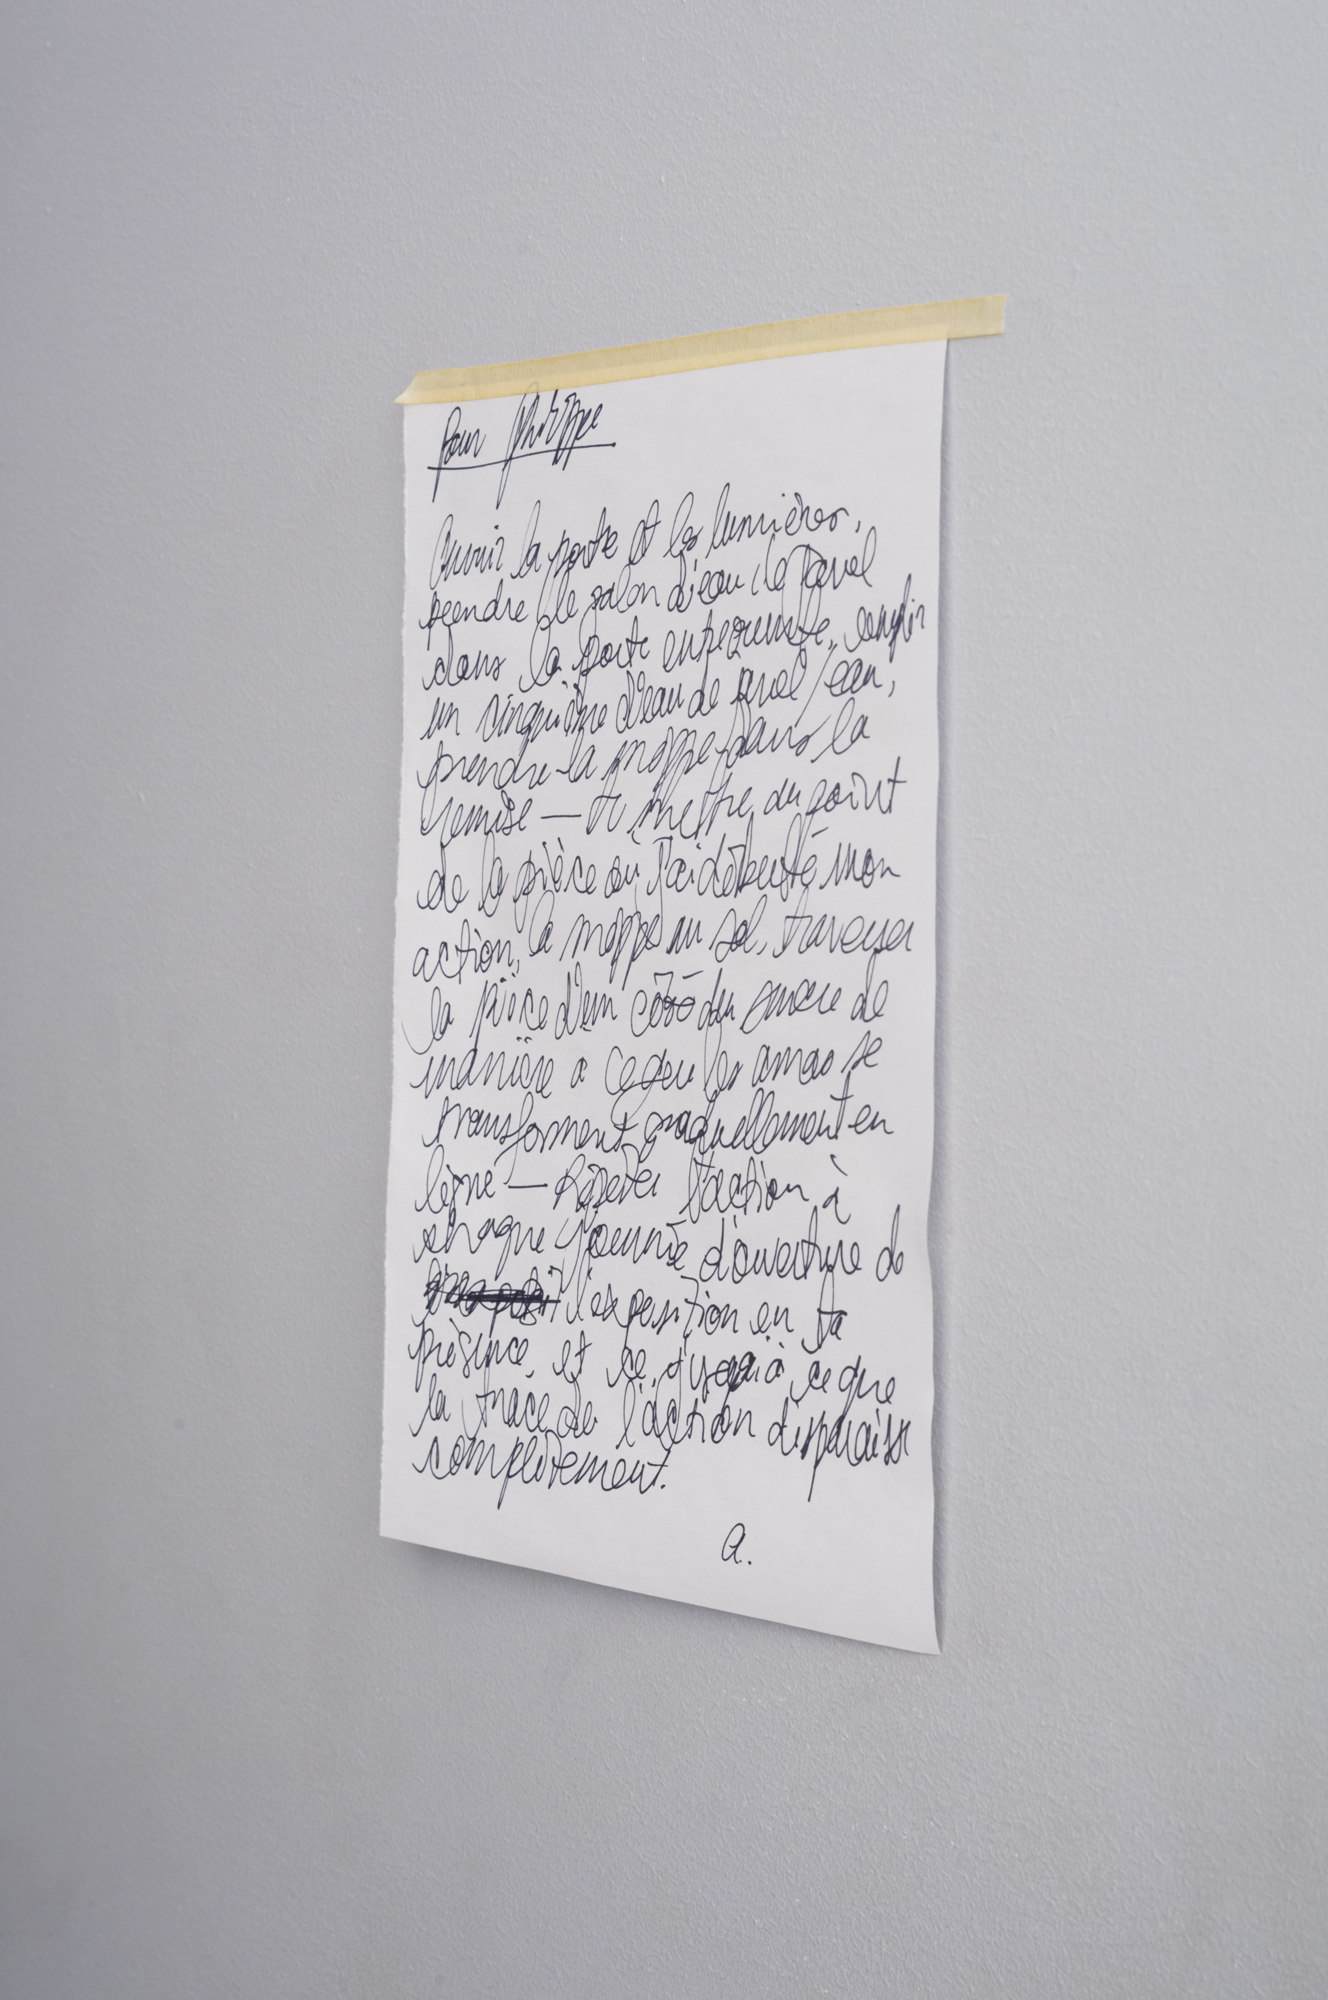 Pour Philippe
Ouvrir la porte et les lumières,
prendre le galon d'eau de Javel
dans la porte entrouverte, remplir
un cinquième d'eau de Javel / eau,
prendre la moppe dans la
remise — et mettre du point
de la pièce où j'ai débuté mon
action, la moppe au sol, traverser
la pièce d'un côté du de
manière à ce que les amas se
transforment graduellement en
ligne — Répéter l'action à
chaque journée d'ouverture de
l'exposition en ta
présence, et ce, jusqu'à ce que
la trace de l'action disparaisse
complètement.
A.